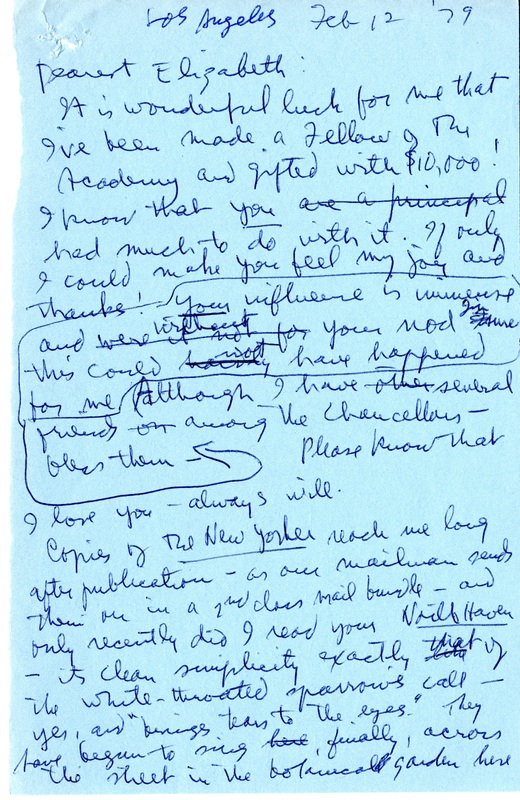 Los Angeles Feb 12 '79
Dearest Elizabeth:
It is wonderful luck for me that
I've been made a Fellow of The
Academy and gifted with $10,000!
I know that you are a principal
had much to do with it. If only
I could make you feel my joy and
thanks! Your influence is immense
and were it not for without your nod I'm sure
this could not have happened
for me Although I have other several
friends on among the Chancellors –
bless them – Please know that
I love you – always will.
Copies of The New Yorker reach me long
after publication – as our mailman sends
them on in a 2nd class mail bundle – and
only recently did I read your North Haven
– its clean simplicity exactly that of
the white-throated sparrow's call –
yes, and "brings tears to the eyes." They
have begun to sing here, finally, across
the street in the botanical garden here